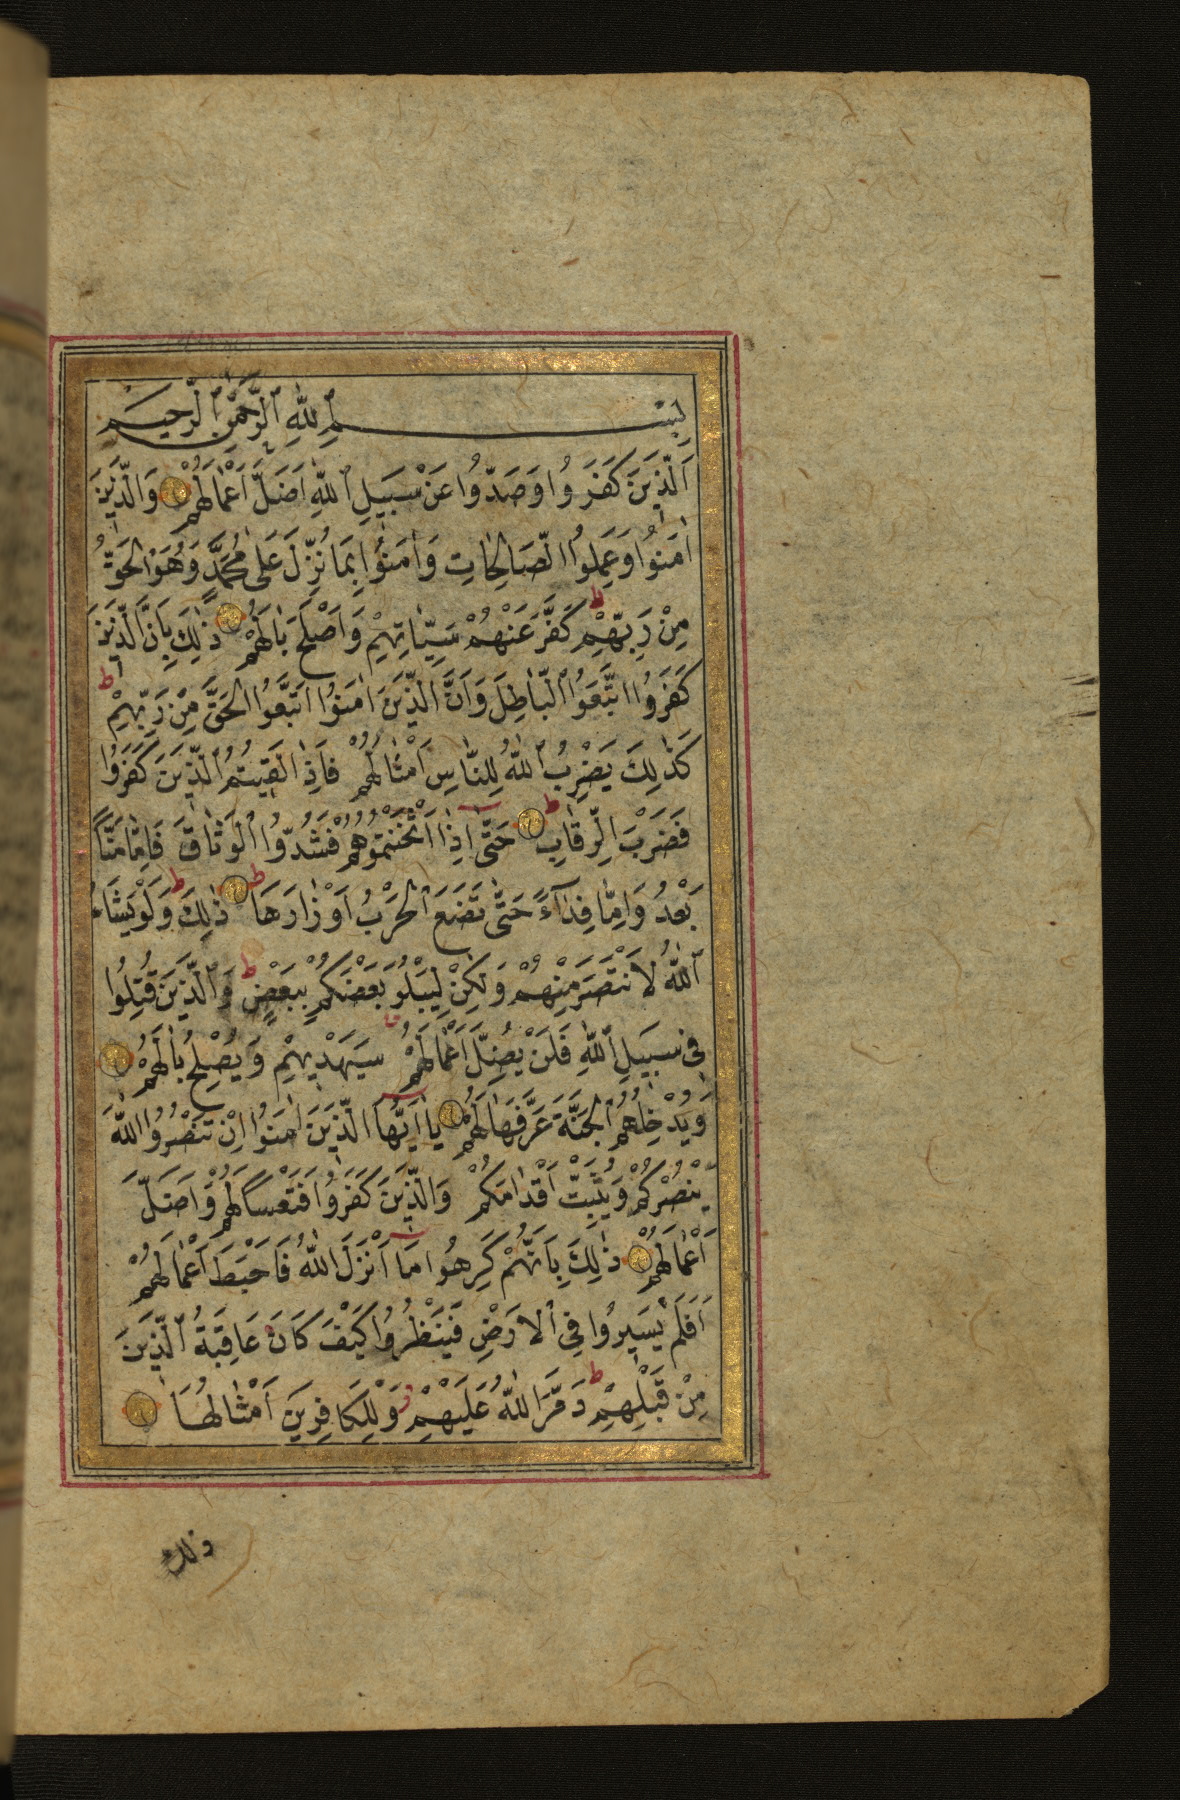 بِسْمِ ٱللّٰهِ ٱلرَّحْمٰنِ ٱلرَّحِيمِ
اَلَّذِينَ كَفَرُوا وَصَدُّوا عَنْ سَبِيلِ ٱللّٰهِ اَضَلَّ اَعْمَالَهُمْ وَالَّذِينَ
اٰمَنُوا وَعَمِلُوا الصَّالِحَاتِ وَاٰمَنُوا بِمَا نُزِّلَ عَلٰى مُحَمَّدٍ وَهُوَ الْحَقُّ
مِنْ رَبِّهِمْ كَفَّرَ عَنْهُمْ سَيِّئَاتِهِمْ وَاَصْلَحَ بَالَهُمْ ذٰلِكَ بِاَنَّ الَّذِينَ
كَفَرُوا اتَّبَعُوا الْبَاطِلَ وَاَنَّ الَّذِينَ اٰمَنُوا اتَّبَعُوا الْحَقَّ مِنْ رَبِّهِمْ
كَذٰلِكَ يَضْرِبُ ٱللّٰهُ لِلنَّاسِ اَمْثَالَهُمْ فَاِذَا لَقِيتُمُ ٱلَّذِينَ كَفَرُوا
فَضَرْبَ الرِّقَابِ حَتّٰى اِذَا اَثْخَنْتُمُوهُمْ فَشُدُّوا الْوَثَاقَ فَاِمَّا مَنًّا
بَعْدُ وَاِمَّا فِدَآءً حَتّٰى تَضَعَ الْحَرْبُ اَوْزَارَهَا ذٰلِكَ وَلَوْ يَشَاءُ
ٱللّٰهُ لَانْتَصَرَ مِنْهُمْ وَلٰكِنْ لِيَبْلُوَ بَعْضَكُمْ بِبَعْضٍ وَٱلَّذِينَ قُتِلُوا
فِي سَبِيلِ ٱللّٰهِ فَلَنْ يُضِلَّ اَعْمَالَهُمْ سَيَهْدِيهِمْ وَيُصْلِحُ بَالَهُمْ
وَيُدْخِلُهُمُ الْجَنَّةَ عَرَّفَهَا لَهُمْ يَا اَيُّهَا الَّذِينَ اٰمَنُوا اِنْ تَنْصُرُوا اللّٰهَ
يَنْصُرْكُمْ وَيُثَبِّتْ اَقْدَامَكُمْ وَالَّذِينَ كَفَرُوا فَتَعْسًا لَهُمْ وَاَضَلَّ
اَعْمَالَهُمْ ذٰلِكَ بِاَنَّهُمْ كَرِهُوا مَا اَنْزَلَ اللّٰهُ فَاَحْبَطَ اَعْمَالَهُمْ
اَفَلَمْ يَسِيرُوا فِي الْاَرْضِ فَيَنْظُرُوا كَيْفَ كَانَ عَاقِبَةُ ٱلَّذِينَ
مِنْ قَبْلِهِمْ دَمَّرَ اللّٰهُ عَلَيْهِمْ وَلِلْكَافِرِينَ اَمْثَالُهَا
ذلك